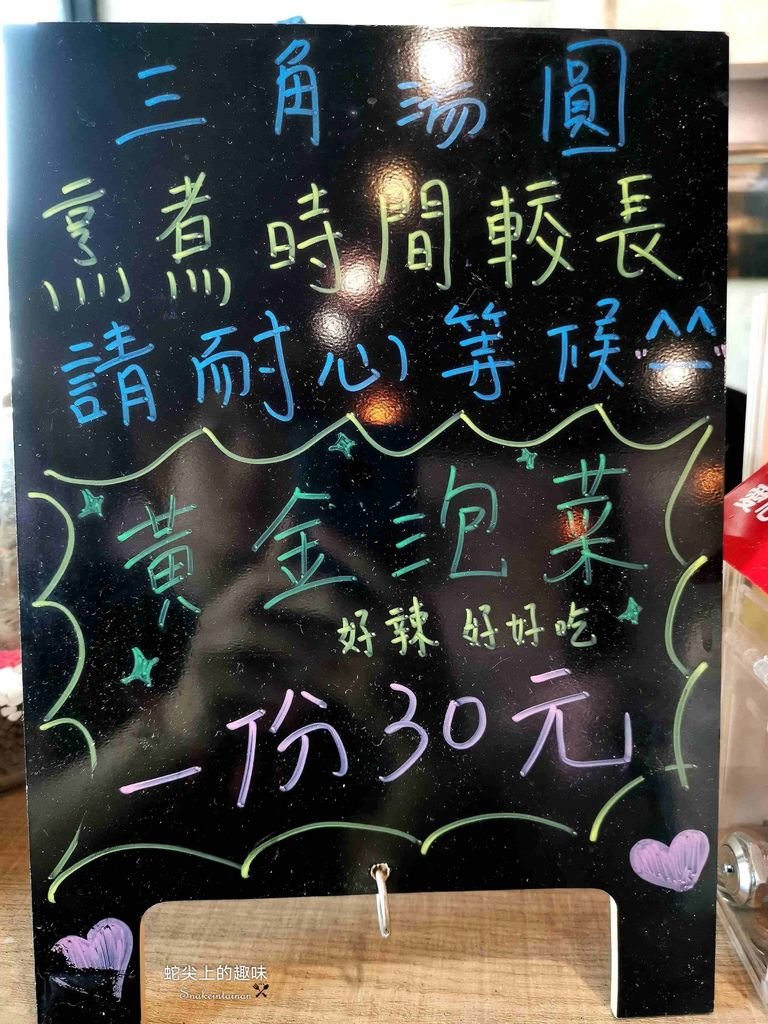 三角湯圓
烹煮時間較長
請耐心等候"^^"
黃金泡菜
好辣 好好吃
一份30元
蛇尖上的趣味
Snakeintainan